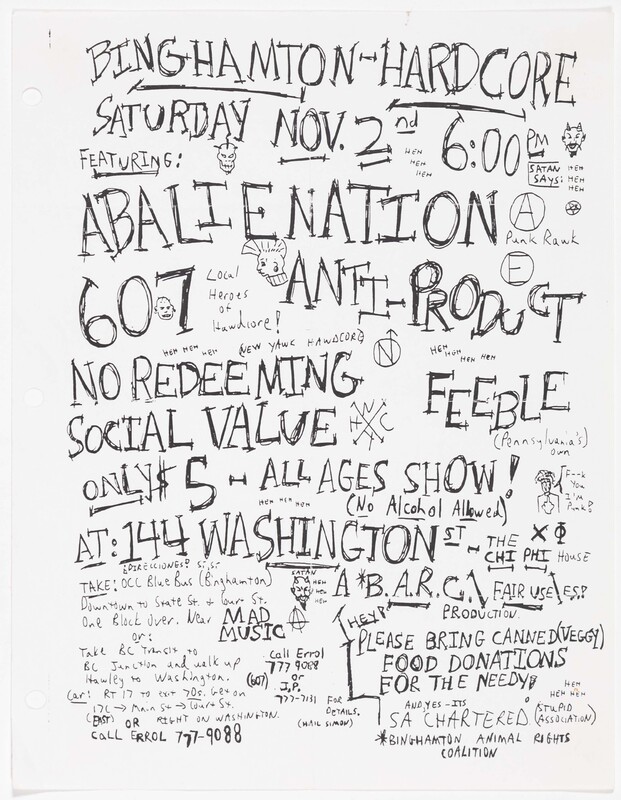 BINGHAMTON-HARDCORE
SATURDAY NOV. 2nd 6:00 PM
HEH
HEH
HEH
SATAN
SAYS:
HEH
HEH
HEH
FEATURING:
ABALIENATION
A
Punk Rawk
607
Local
Heroes
of
Hawdcore!
ANTI-PRODUCT
E
HEH HEH HEH
(NEW YAWK HAWDCORE)
N
HEH HEH HEH HEH
NO REDEEMING
SOCIAL VALUE
FEEBLE
(Pennsylvania's)
own
ONLY $5 - ALL AGES SHOW!
HEH HEH HEH
(No Alcohol Allowed)
F--k
You
I'm
Punk!
AT: 144 WASHINGTON ST - THE CHI PHI HOUSE
ΧΦ
¿DIRECCIONES? Sí, Sí
TAKE: OCC Blue Bus (Binghamton)
Downtown to State St. & Court St.
One Block Over. Near MAD MUSIC
A
or:
Take BC Transit to
BC Junction and walk up
Hawley to Washington.
Car: RT 17 to exit 70s. Get on
17C → Main St → Court St.
(EAST) OR RIGHT ON WASHINGTON.
CALL ERROL 777-9088
SATAN
HEH
HEH
HEH
Call Errol
777 9088
(607) or
J.P.
777-7131
FOR
DETAILS.
(HAIL SIMON)
A *B.A.R.C.\ FAIR USE \ ES.?
PRODUCTION.
HEY!
PLEASE BRING CANNED (VEGGY)
FOOD DONATIONS
FOR THE NEEDY!
HEH
HEH HEH
AND, YES - ITS
SA CHARTERED (STUPID ASSOCIATION)
*BINGHAMTON ANIMAL RIGHTS
COALITION